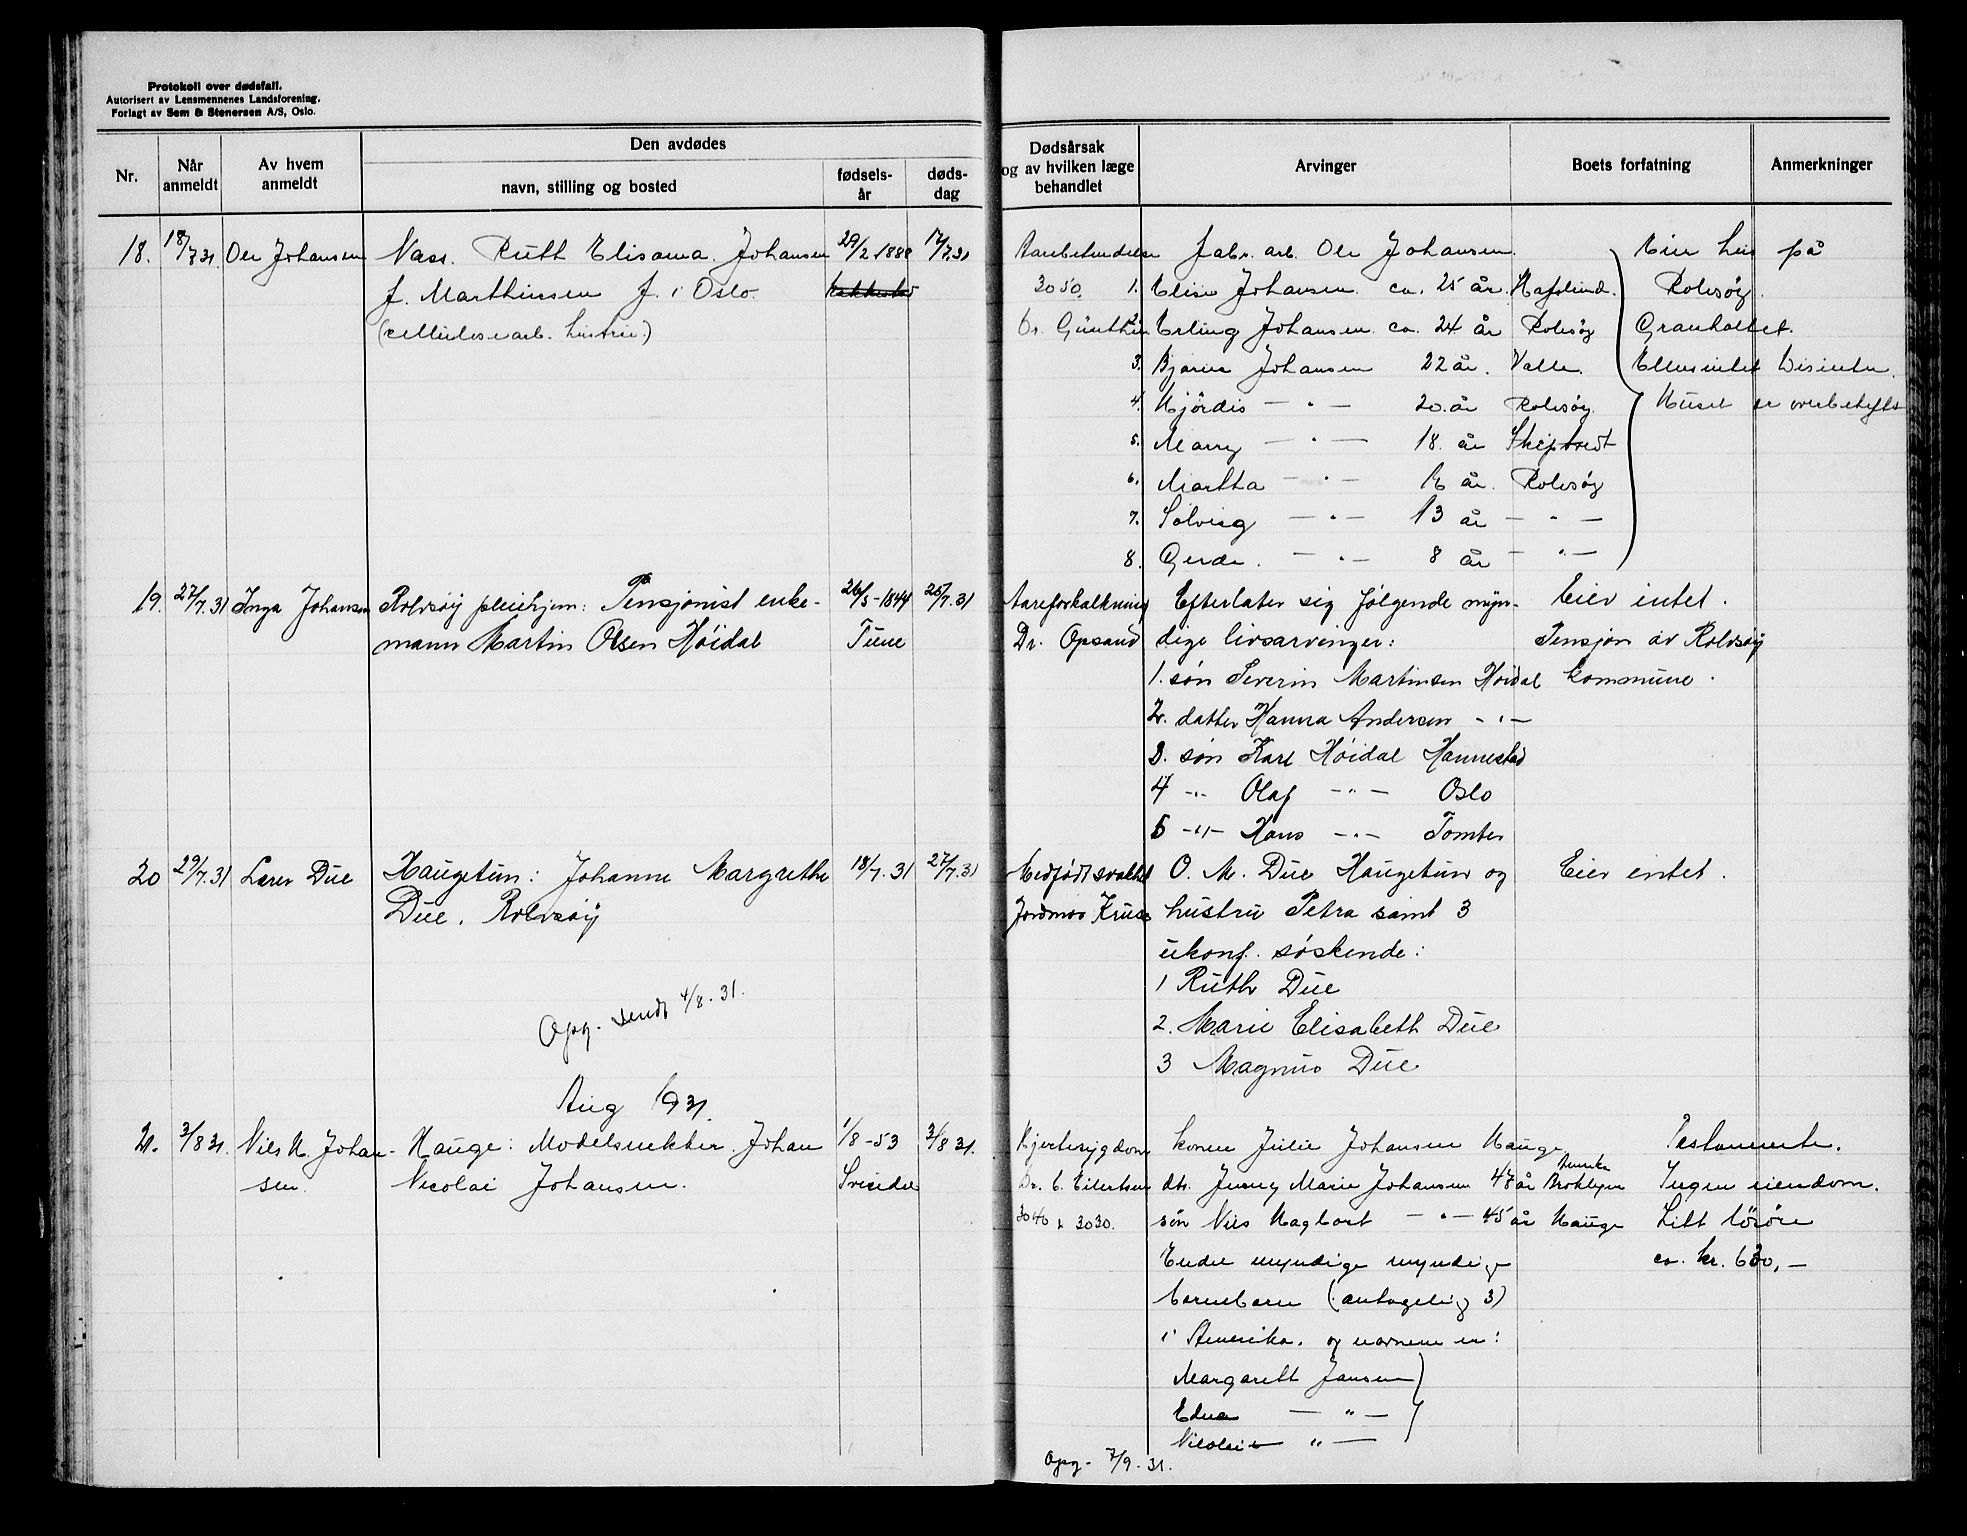 Protokoll over dødsfall.
Autorisert av Lensmennenes Landsforening.
Forlagt av Sem & Stenersen A/S, Oslo.
Nr.
Når anmeldt
Av hvem anmeldt
Den avdødes
navn, stilling og bosted
fødsels-år
døds-dag
Dødsårsak og av hvilken læge behandlet
Arvinger
Boets forfatning
Anmerkninger
18. 18/7 31. Ole Johansen Ruth Elisama Johansen 29/2 1888 17/7 31
f. Marthinsen f. i Oslo.
fabr. arb. Ole Johansen.
3050.
Dr. Günther
1. Elise Johansen ca. 25 år. Hafslund.
2. Erling Johansen ca. 24 år Rolvsøy
3. Bjarne Johansen 22 år. Valle.
4. Hjördis — " — 20. år Rolvsøy.
5. Marry — " — 18. år
6. Martha — " — 16 år. Rolvsøy
7. Solveig — " — 13 år — " —
8. Gerda. — " — 8 år — " —
Eier hus på
Rolvsøy.
Granholtet.
Ellers intet
Huset er overbeheftet
19. 27/7. 31 Inga Johansen Rolvsøy pleiehjem: Pensjonist enke-
mann Martin Olsen Höidal
26/3-1844
Tune
25/7. 31
Åreforkalkning
Dr. Opsand
Efterlater sig følgende myn-
dige livsarvinger:
1. søn Severin Martinsen Höidal
2. datter Hanna Andersen - " -
3. søn Karl Höidal Hannestad
4 - " - Olaf - " - Oslo
5 - " - Hans - " - Tomter
Eier intet.
Pensjon av Rolvsøy
kommune.
20 29/7. 31 Lærer Due Haugetun: Johanne Margrethe
Due. Rolvsøy
18/7. 31 27/7. 31
Medfødt svakhet
Jordmor Kruse
O. M. Due Haugetun og
hustru Petra samt 3
ukonf. søskende:
1 Ruth Due
2. Marie Elisabeth Due
3 Magnus Due
Eier intet.
Opg. sendt 4/8. 31.
Aug 1931.
21. 3/8 31. Nils H. Johan-
sen.
Hauge: Modelsnekker Johan
Nicolai Johansen.
1/8-53
3/8 31.
Hjertesygdom
Dr. C. Eilertsen
3040 + 3030.
konen Julie Johansen Hauge
dtr. Jenny Marie Johansen 47 år Brooklyn Amerika
søn Nils Hagbart — " — 45 år Hauge
Endu myndige myndige
barnebarn (antagelig 3)
i Amerika. og navnene er:
Margarett Jansen
Edna — " —
Nicolai — " —
Testamente.
Ingen eiendom.
Litt løsøre
ca. kr. 600,-
Opg. 7/9. 31.